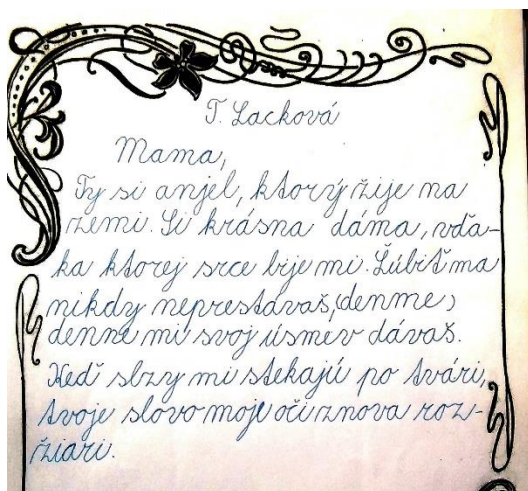 T. Lacková
Mama,
Ty si anjel, ktorý žije na
zemi. Si krásna dáma, vďa-
ka ktorej srce bije mi. Ľúbiť ma
nikdy neprestávaš, denme,
denne mi svoj úsmev dávaš.
Keď slzy mi stekajú po tvári,
tvoje slovo moje oči znova roz-
žiari.